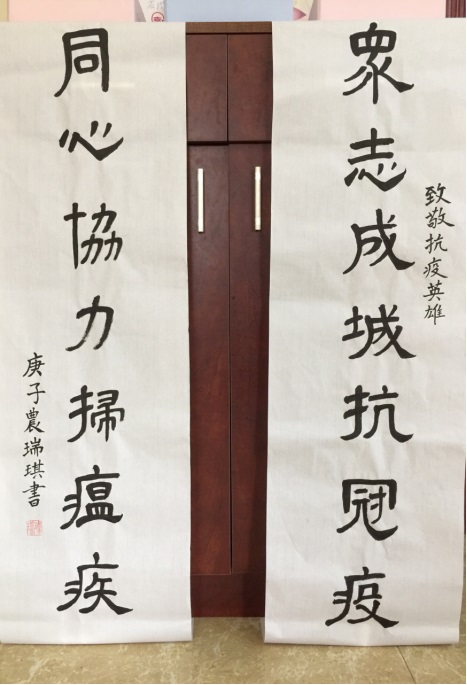 致敬抗疫英雄
眾志成城抗冠疫
同心協力掃瘟疾
庚子農瑞琪書